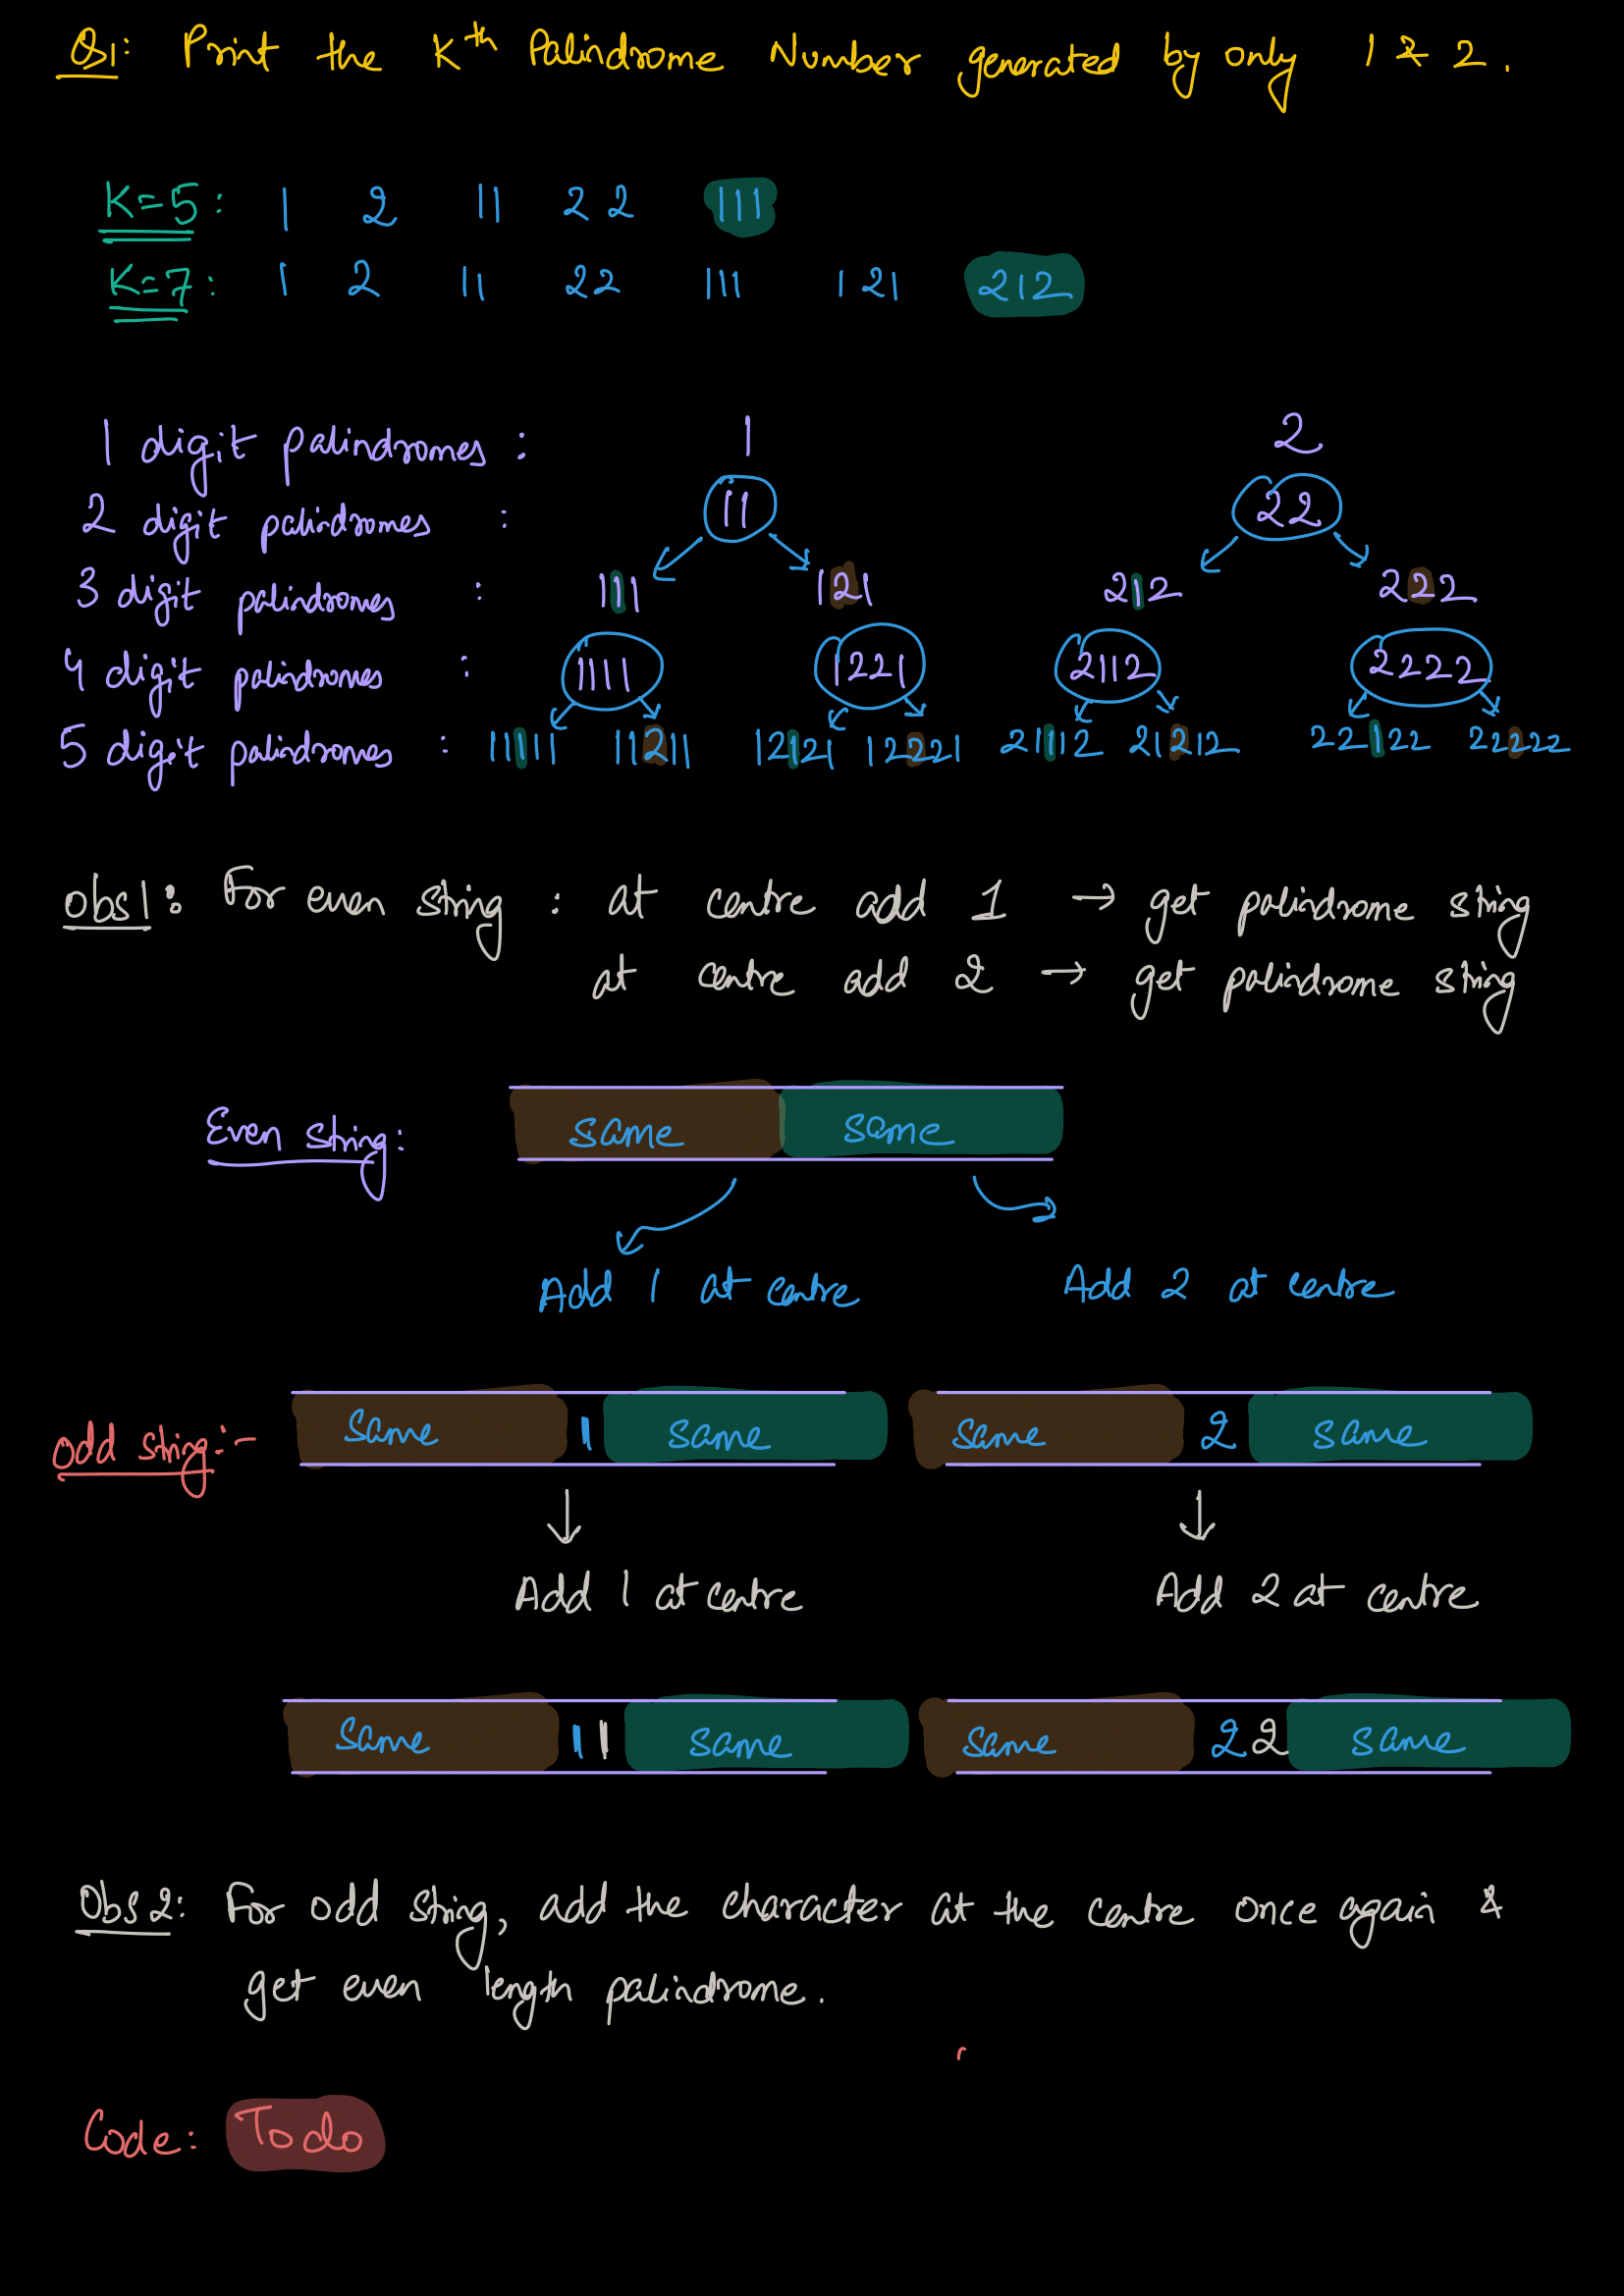 Q1: Print the Kth Palindrome Number generated by only 1 & 2.
K=5: 1 2 11 22 111
K=7: 1 2 11 22 111 121 212
1 digit palindromes : 1 2
2 digit palindromes : 11 22
3 digit palindromes : 111 121 212 222
4 digit palindromes : 1111 1221 2112 2222
5 digit palindromes : 11111 11211 12121 12221 21112 21212 22122 22222
Obs1: For even string : at centre add 1 → get palindrome string
at centre add 2 → get palindrome string
Even string: same same
Add 1 at centre Add 2 at centre
odd string:- same 1 same same 2 same
Add 1 at centre Add 2 at centre
same 11 same same 22 same
Obs2: For odd string, add the character at the centre once again &
get even length palindrome.
Code: Todo